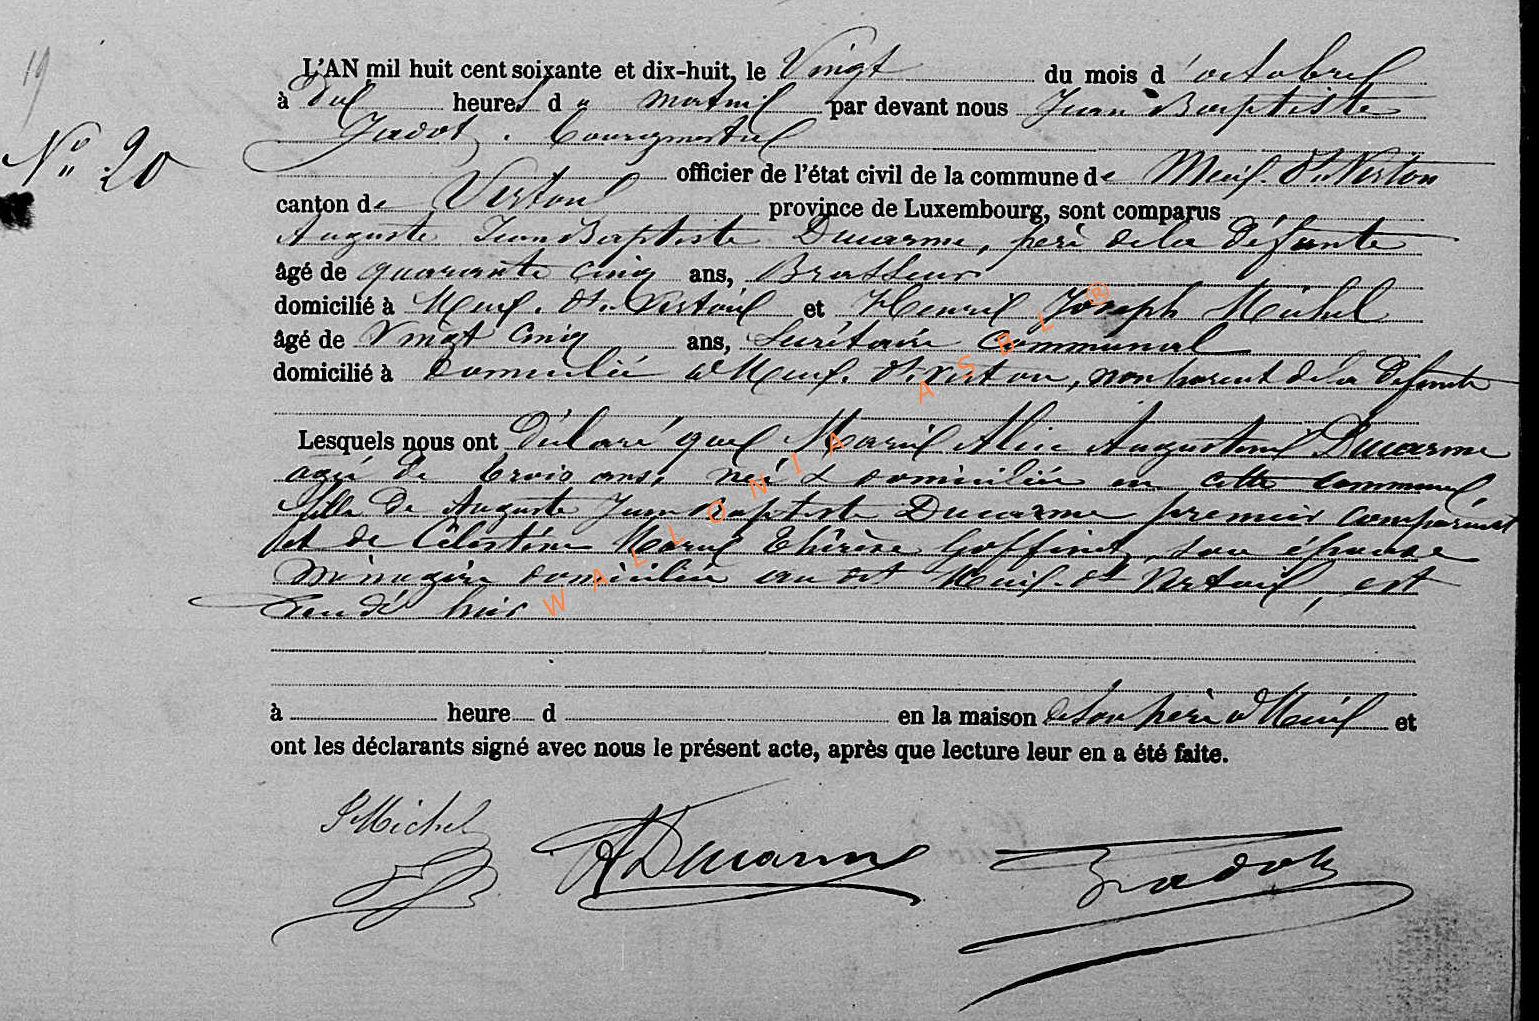 19
L'AN mil huit cent soixante et dix-huit, le Vingt du mois d'octobre
à dix heures d u matin par devant nous Jean Baptiste
Jadot, bourgmestre
N° 20
officier de l'état civil de la commune de Meix-dt-Virton
canton de Virton province de Luxembourg, sont comparus
Auguste Jean Baptiste Ducarme, père de la défunte
âgé de quarante cinq ans, Brasseur
domicilié à Meix-dt-Virton et Henri Joseph Michel
âgé de Vingt cinq ans, Secrétaire communal
domicilié à domicilié à Meix-dt-Virton, non parent de la défunte
Lesquels nous ont déclaré que Marie Alice Augustine Ducarme
agée de trois ans, née & domiciliée en cette commune,
fille de Auguste Jean Baptiste Ducarme premier comparant
et de Célestine Marie Thérèse Goffinet, son épouse
ménagère domiciliée au dit Meix-dt-Virton, est
décédée hier
à heure d en la maison de son père à Meix et
ont les déclarants signé avec nous le présent acte, après que lecture leur en a été faite.
Michel ADucarme Jadot
WALLONIA ASBL ®